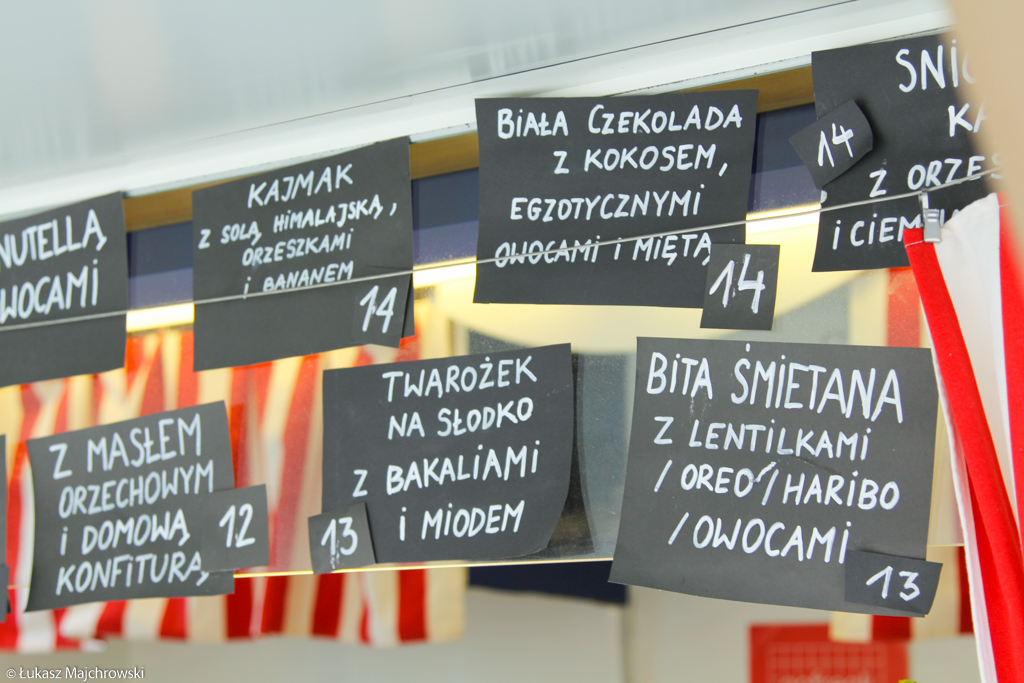 NUTELLĄ
OWOCAMI
KAJMAK
Z SOLĄ HIMALAJSKĄ,
ORZESZKAMI
I BANANEM
14
BIAŁA CZEKOLADA
Z KOKOSEM,
EGZOTYCZNYMI
OWOCAMI I MIĘTĄ
14
14
Z
I
Z MASŁEM
ORZECHOWYM
I DOMOWĄ
KONFITURĄ
12
TWAROŻEK
NA SŁODKO
Z BAKALIAMI
I MIODEM
13
BITA ŚMIETANA
Z LENTILKAMI
/OREO/HARIBO
/OWOCAMI
13
© Łukasz Majchrowski